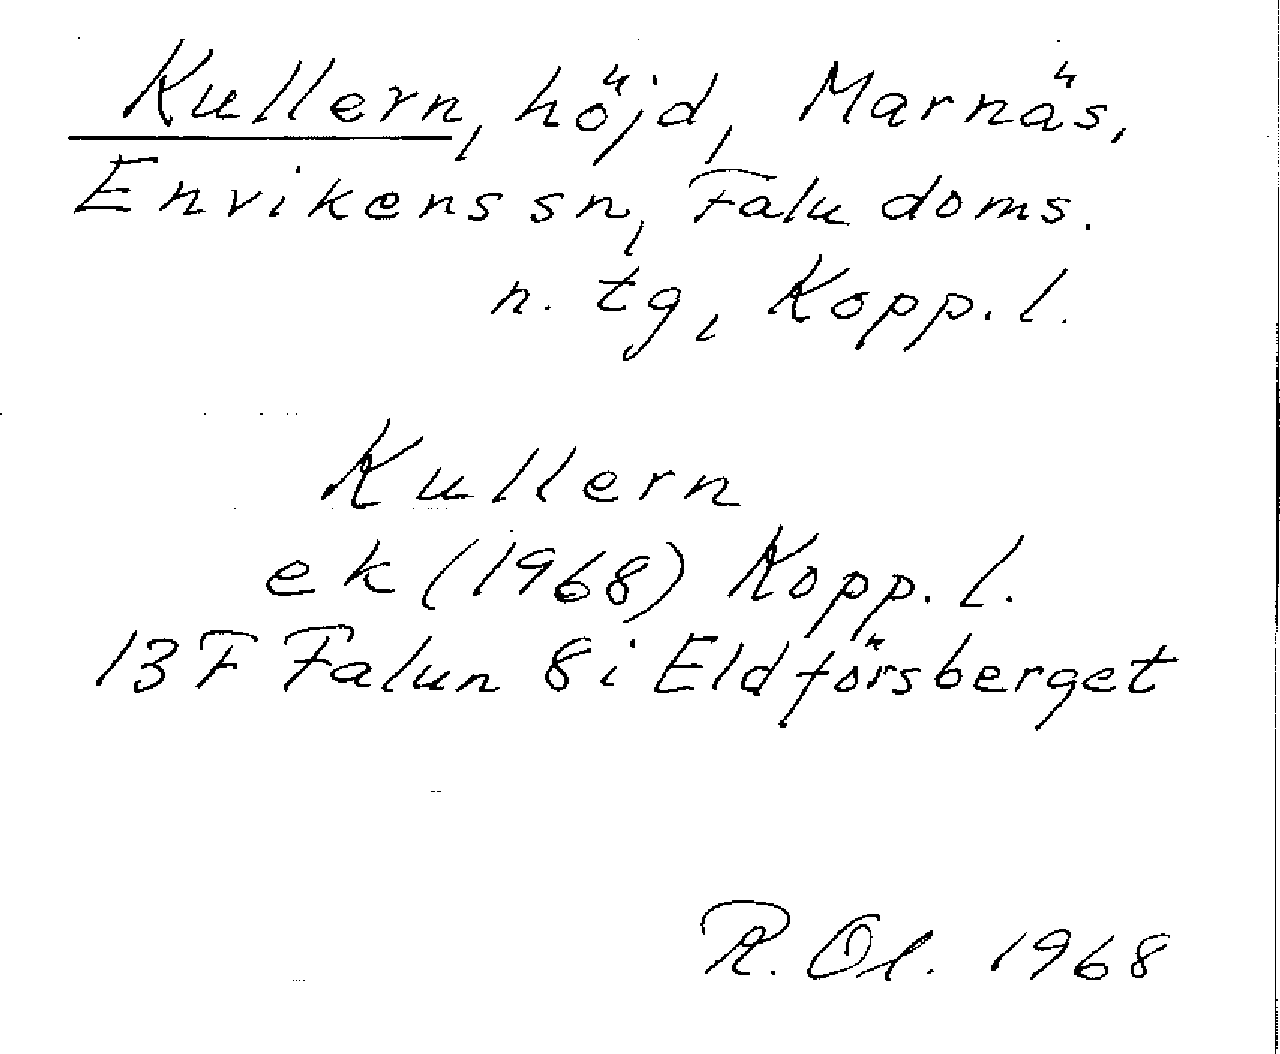 Kullern, höjd, Marnäs,
Envikens sn, Falu doms.
n. tg, Kopp. l.
Kullern
ek (1968) Kopp. l.
13F Falun 8i Eldförsberget
R. Ol. 1968